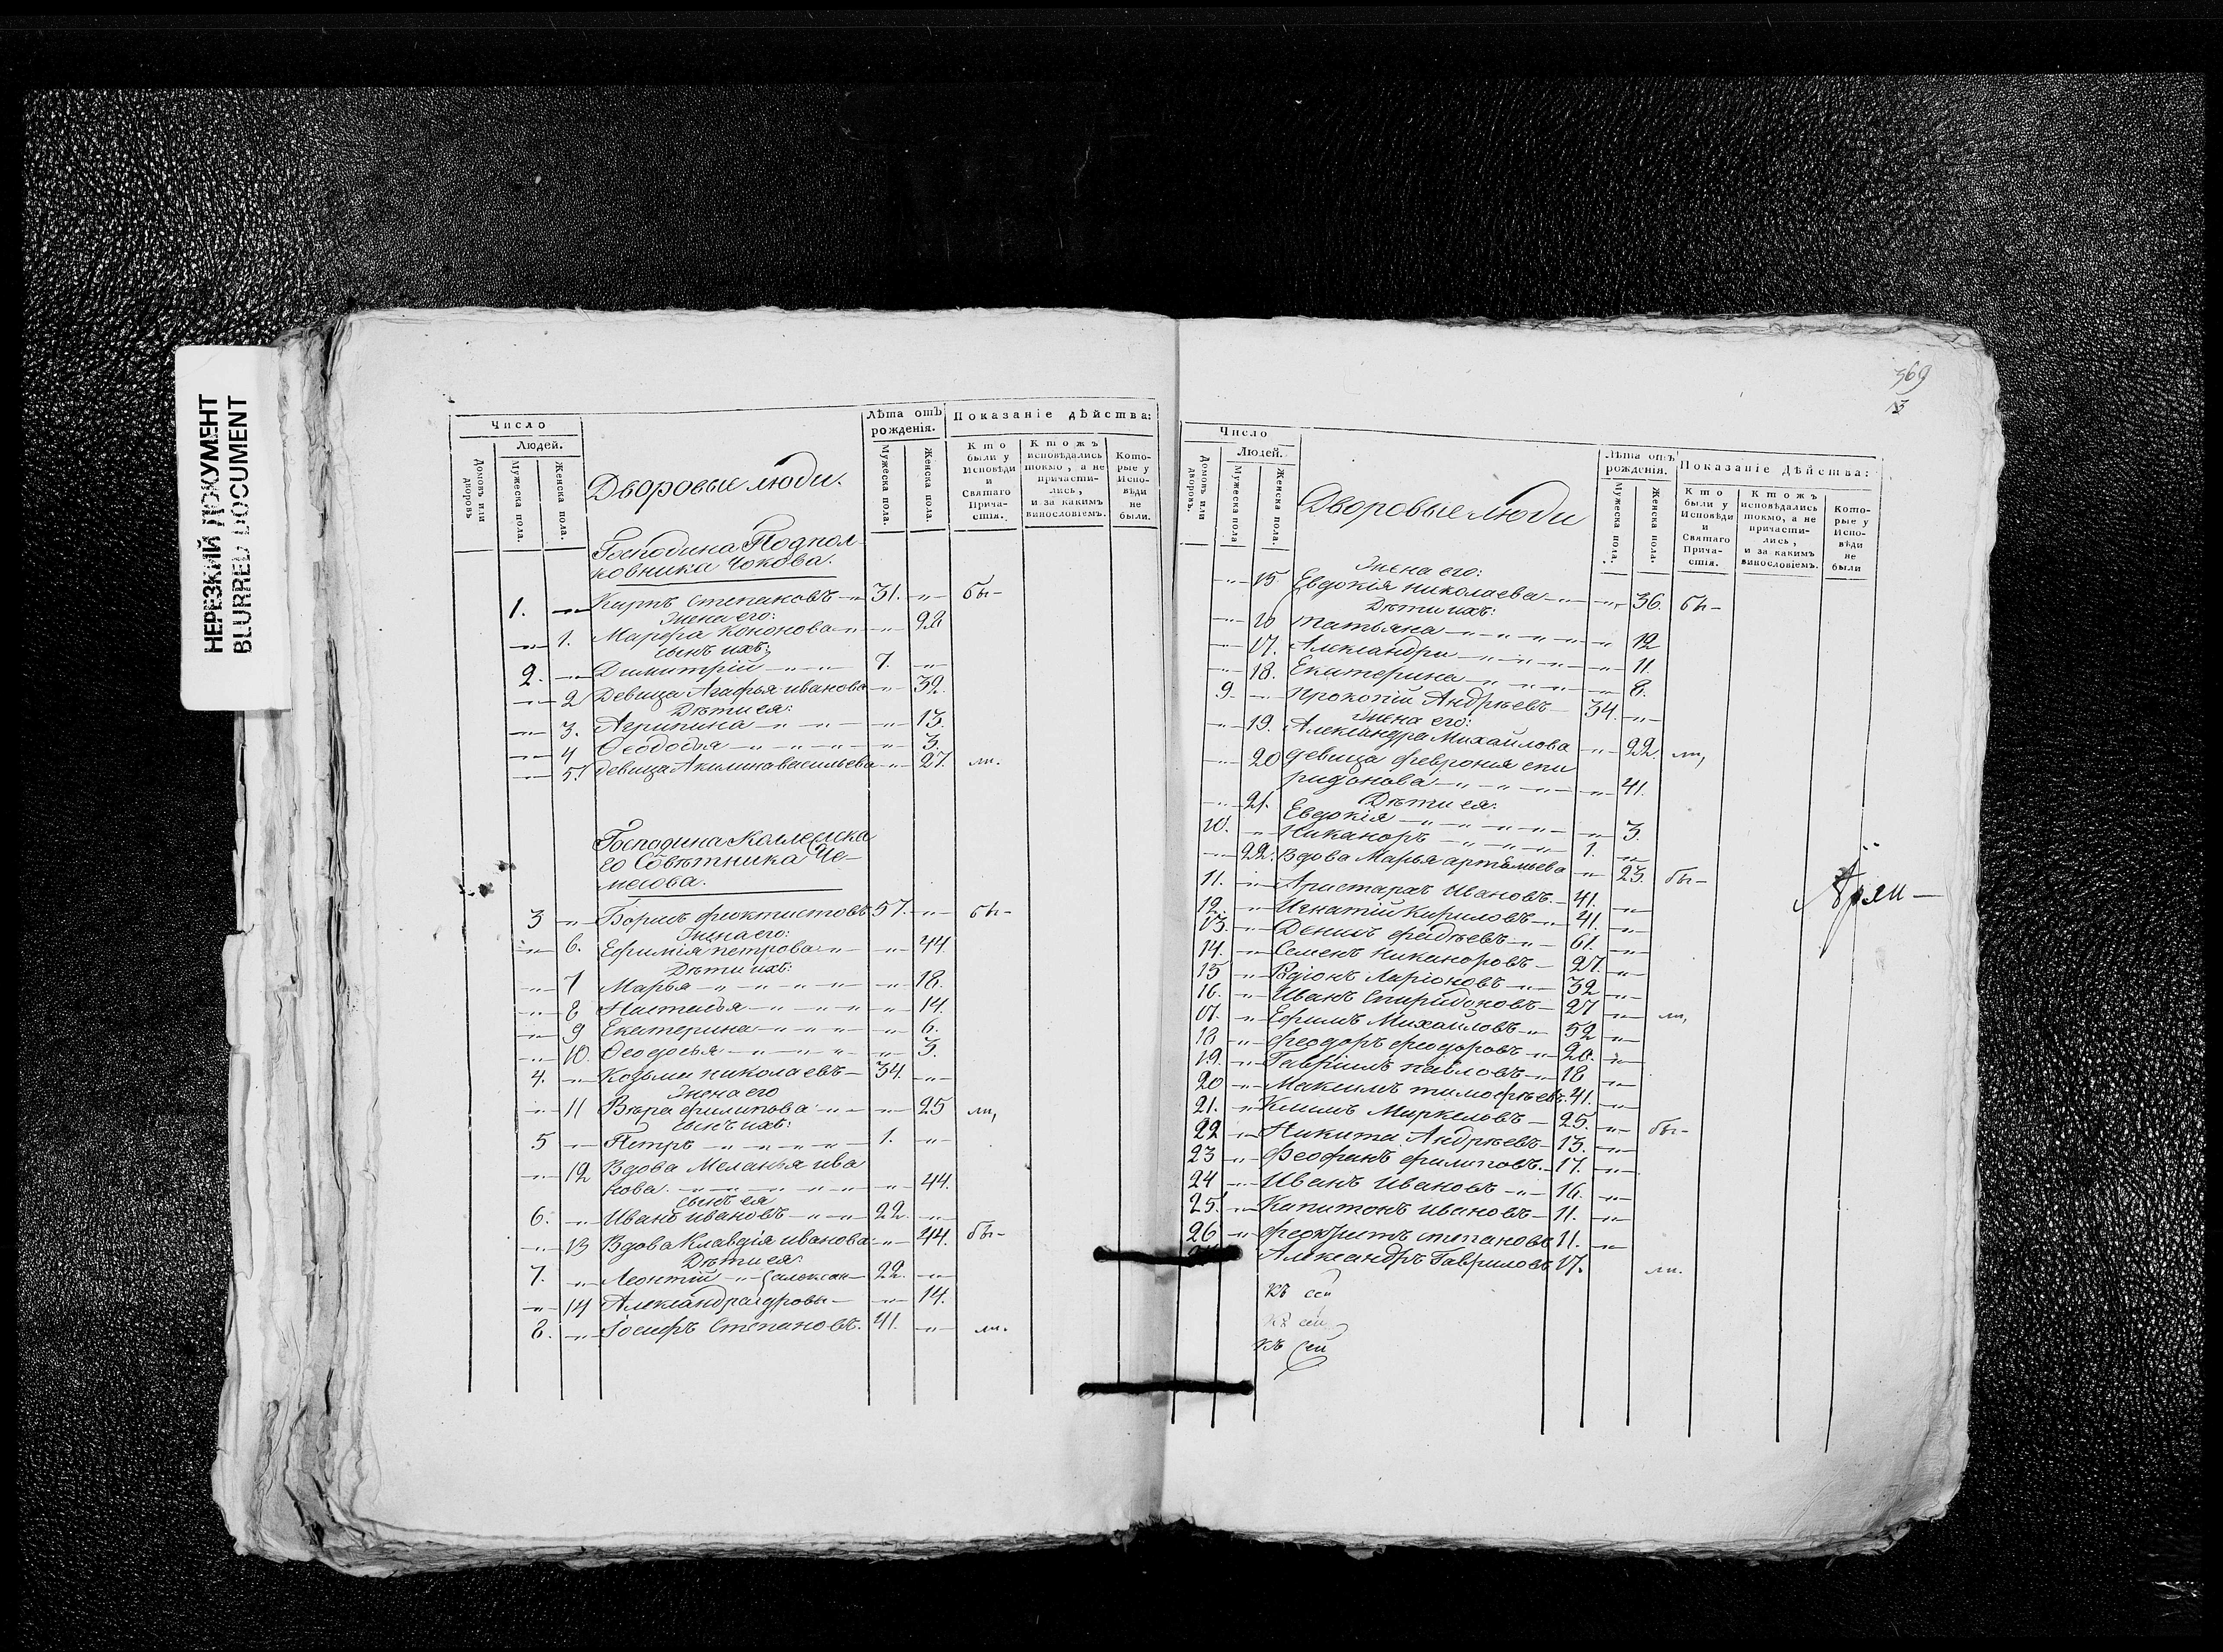 НЕРЕЗКИЙ ДОКУМЕНТ
BLURRED DOCUMENT
Число
Людей.
Домовъ или дворовъ
Мужеска пола.
Женска пола.
Дворовые люди.
Лѣта отъ рожденія.
Мужеска пола.
Женска пола.
Показаніе дѣйства:
Кто были у Исповѣди и Святаго Причастія.
Ктожъ исповѣдались токмо, а не причастились, и за какимъ винословіемъ.
Которые у Исповѣди не были.
Господина Подпол
ковника Чокова.
1. Карпъ Степановъ 31. бы-
Жена его:
1. Марфа Кононова 28
сынъ ихъ:
2. Димитрій 7.
2 Девица Агафья иванова 32.
Дѣти ея:
3. Агрипина 13.
4 Ѳеодосья 3.
5. девица Акилина васильева 27. ли.
Господина Коллежска
го Совѣтника Че-
месова.
3 Борисъ феоктистовъ 57. бы-
Жена его:
6. Ефимія петрова 44.
Дѣти ихъ:
7 Марья 18.
8 Настасья 14.
9 Екатерина 6.
10. Ѳеодосья 3.
4. Козьма николаевъ 34.
Жена его
11 Вѣра филипова 25 ли,
сынъ ихъ:
5 Петръ 1.
12 Вдова Меланья ива
нова. 44.
сынъ ея
6. Иванъ ивановъ 22.
13 Вдова Клавдія иванова 44. бы-
Дѣти ея:
7. Леонтій алексан 22.
14 Александра дровы 14.
8. Іосифъ Степановъ. 41. ли.
369
13
Число
Людей.
Домовъ или дворовъ.
Мужеска пола
Женска пола.
Дворовые люди
Лѣта отъ рожденія.
Мужеска пола.
Женска пола.
Показаніе Дѣйства:
Кто были у Исповѣди и Святаго Причастія.
Ктожъ исповѣдались токмо, а не причастились, и за какимъ винословіемъ.
Которые у Исповѣди не были
Жена его:
15. Евдокія николаева 36. бы-
Дѣти ихъ:
16 татьяна 12
17. Александра 11.
18. Екатерина 8.
9. Прокопій Андрѣевъ 34.
Жена его:
19. Александра Михайлова 22. ли,
20 девица феврония спи
ридонова 41.
Дѣти ея:
21. Евдокія 3
10. Никаноръ 1.
22. Вдова Марья артемьева 23. бы-
11. Аристархъ Ивановъ 41.
12. Игнатій Кириловъ 41.
13. Денисъ фадѣевъ 61.
14. Семенъ Никаноровъ 27.
15 Родіонъ Ларіоновъ 32
16. Иванъ Спиридоновъ 27 ли,
17. Ефимъ Михайловъ 52
18 феодоръ феодоровъ 20.
19. Гавріилъ павловъ 18
20 Максимъ тимофѣевъ. 41.
21. Климъ Маркеловъ 25. бы-
22 Никита Андрѣевъ 13.
23 Феофанъ филиповъ. 17.
24 Иванъ Ивановъ 16.
25. Капитонъ ивановъ 11.
26 феоктистъ степановъ 11.
Александръ Гавриловъ 17. ли.
Къ сей
Къ сей
Къ сей